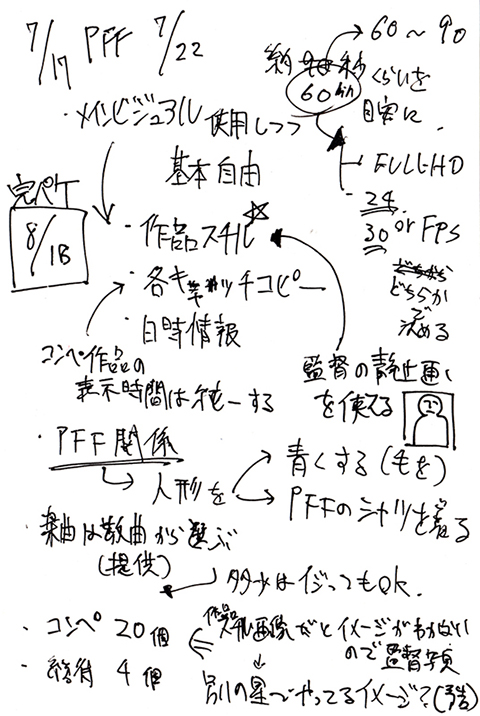 7/17 PFF 7/22
60〜90
60min
くらいを
目安に.
・メインビジュアル 使用しつつ
基本自由
FULL-HD
24
30 or FPS
どちらか
で
決める
完パケ
8/18
・作品スチル☆
・各キャッチコピー
・日時情報
コンペ作品の
表示時間は統一する
監督の静止画
を使える
・PFF関係
人形を
青くする(毛を)
PFFのシャツを着る
楽曲は数曲から選ぶ
(提供)
多少はイジってもOK.
・コンペ 20個
・招待 4個
作品
スチル画像だとイメージがわかない
ので監督写真
別の星でやってるイメージ?(予告)